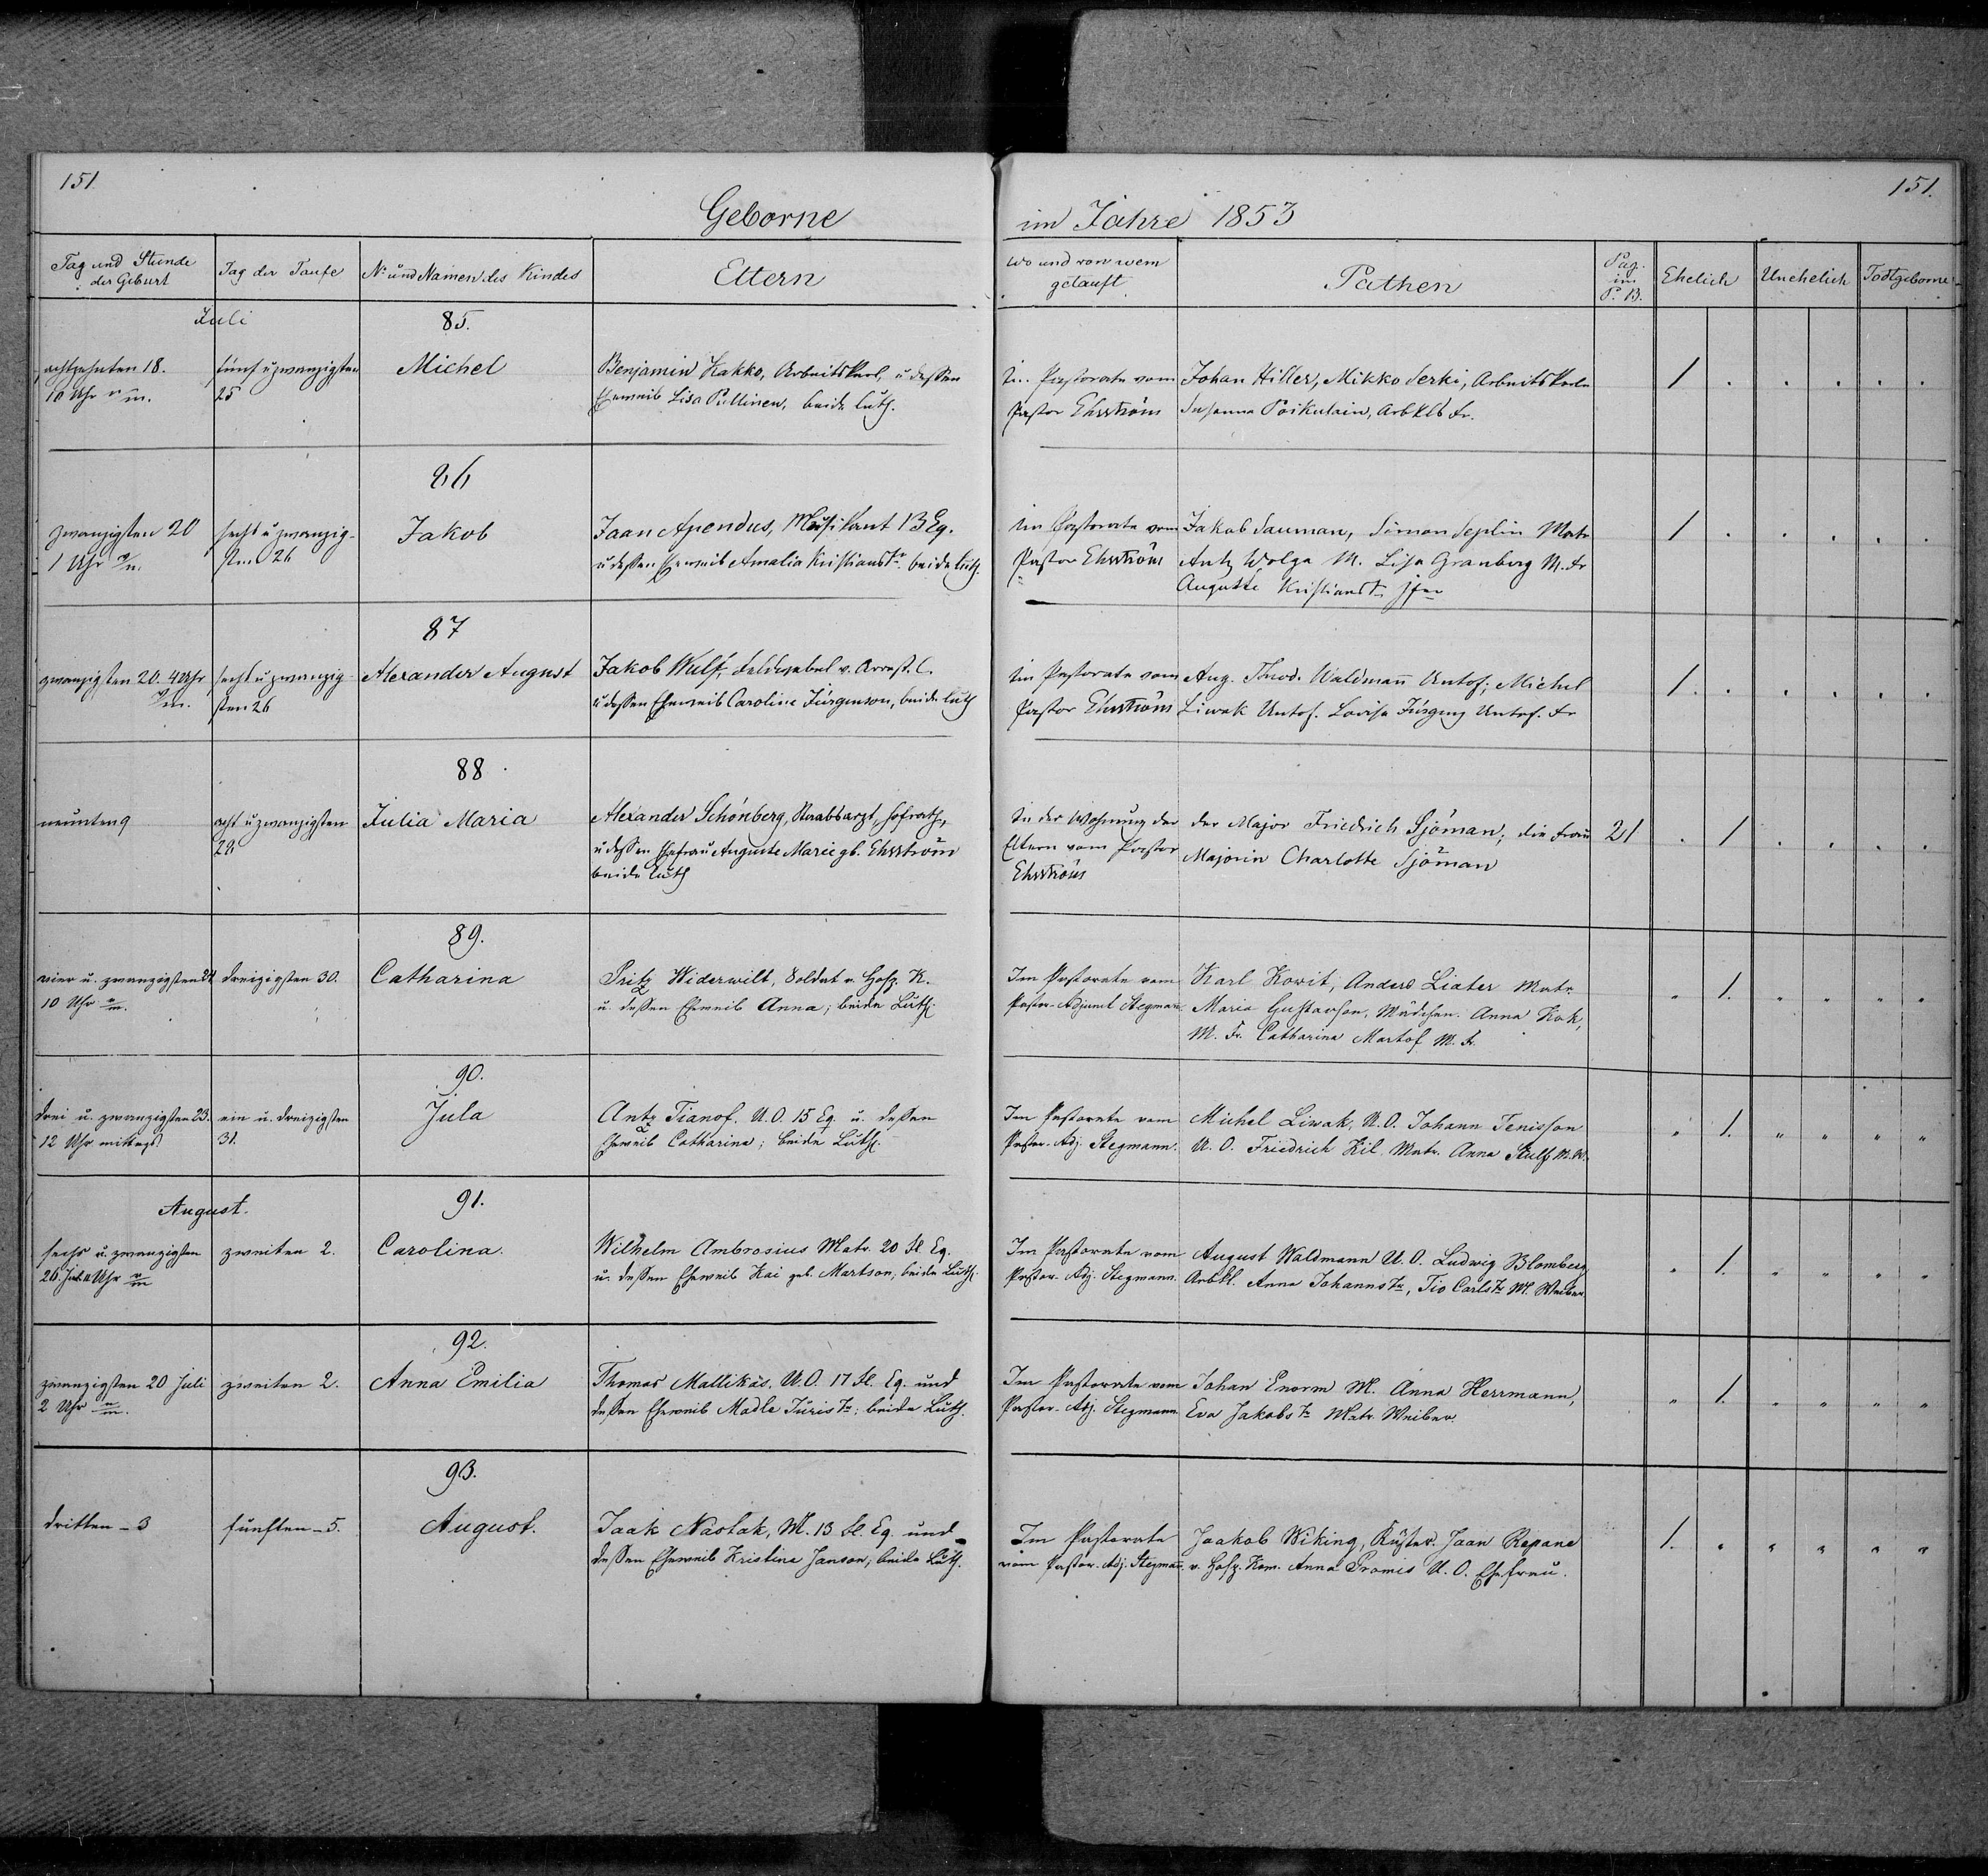 151.
Geborne
im Jahre 1853
151.
Tag und Stunde der Geburt
Tag der Taufe
No und Namen des Kindes
Eltern
wo und von wem getauft
Pathen
Pag. im P. B.
Ehelich
Unehelich
Todtgeborne
Juli
85.
achtzehnten 18.
10 Uhr
fünf u zwanzigsten
25
Michel
Benjamin Kakko, Arbeitskerl, u dessen
Eheweib Lisa Pullinen, beide luth.
Im Pastorate vom
Pastor Ehrström
Johan Hiller, Mikko Serki, Arbeitskerle
Susanna Poikulain, Arbkls fr.
1 . . . . .
86
zwanzigsten 20
1 Uhr
sechs u zwanzig-
sten 26
Jakob
Jaan Apendus, Musikant 13 Eq.
u dessen Eheweib Amalia Kristianstr. beide luth.
im Pastorate vom
Pastor Ehrström
Jakob Sauman, Simon Seplin Matr
Antz Wolga M. Lisa Granberg M. fr
Auguste Kristianst.
1 . . . . .
87
zwanzigsten 20. 4 Uhr
sechs u zwanzig
sten 26
Alexander August
Jakob Wulf, Feldwebel v. Arrest. C.
u dessen Eheweib Caroline Jürgenson, beide luth
im Pastorate vom
Pastor Ehrström
Aug. Thod. Waldmann Untof; Michel
Liwak Untof. Lovisa Jürgens Untof. fr
1 . . . . .
88
neunten 9
acht u zwanzigsten
28
Julia Maria
Alexander Schönberg, Staabsarzt, Hofrath,
u dessen Ehefrau Auguste Marie gb. Ehrström
beide luth
In der Wohnung der
Eltern vom Pastor
Ehrström
der Major Friedrich Sjöman; die Frau
Majorin Charlotte Sjöman
21
. 1 . . . .
89.
vier u. zwanzigsten 24
10 Uhr
dreizigsten 30.
Catharina
Pritz Widerwilt, Soldat v. Hosp. K.
u. dessen Eheweib Anna; beide Luth.
Im Pastorate vom
Pastor-Adjunct Stegmann.
Karl Kowit, Anders Liater Matr.
Maria Gustavson, Mädchen. Anna Kok,
M. Fr. Catharina Martof M. Fr.
" 1. " " " "
90.
drei u. zwanzigsten 23.
12 Uhr mittags
ein u. dreizigsten
31.
Jula
Antz Tianof. U.O. 15 Eq. u. dessen
Eheweib Catharina; beide Luth.
Im Pastorate vom
Pastor-Adj. Stegmann.
Michel Liwak, U.O. Johann Tenisson
U.O. Friedrich Kil Matr. Anna Kulf M.W.
" 1. " " " "
August.
91.
sechs u. zwanzigsten
26. Juli. 11 Uhr
zweiten 2.
Carolina.
Wilhelm Ambrosius Matr. 20 Fl. Eq.
u. dessen Eheweib Kai geb. Martson, beide Luth.
Im Pastorate vom
Pastor. Adj. Stegmann.
August Waldmann U.O. Ludwig Blomberg
Arbkl. Anna Johannstr., Tio Carlstr. M. Weiber.
" 1. " " " "
92.
zwanzigsten 20 Juli
2 Uhr
zweiten 2.
Anna Emilia
Thomas Mallikäs. U.O. 17 Fl. Eq. und
dessen Eheweib Madle Juristr.; beide Luth.
Im Pastorate vom
Pastor-Adj. Stegmann
Johan Enorm M. Anna Herrmann,
Eva Jakobstr. Matr. Weiber
" 1. " " " "
93.
dritten - 3
fünften - 5.
August.
Jaak Nastak, M. 13 Fl. Eq. und
dessen Eheweib Kristine Janson; beide Luth.
Im Pastorate
vom Pastor. Adj. Stegmann.
Jaakob Wiking, Küster. Jaan Repane
v. Hosp. Kom. Anna Promis U.O. Ehefrau.
1. " " " " "